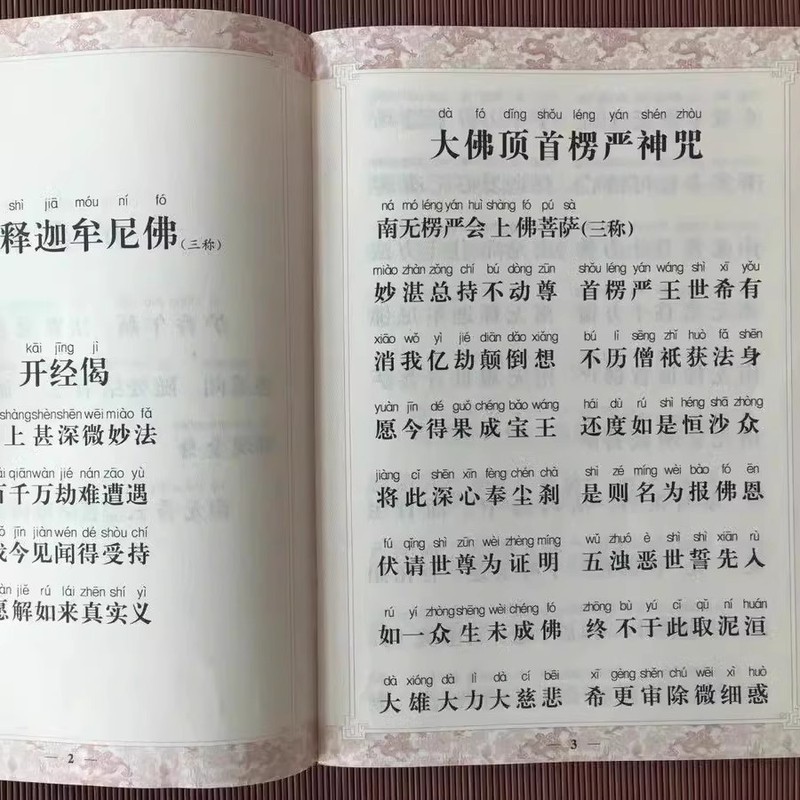 shì jiā móu ní fó
释迦牟尼佛(三称)
kāi jīng jì
开经偈
shàng shèn shēn wēi miào fǎ
上甚深微妙法
qiān wàn jié nán zāo yù
百千万劫难遭遇
jīn jiàn wén dé shòu chí
我今见闻得受持
jiě rú lái zhēn shí yì
愿解如来真实义
— 2 —
dà fó dǐng shǒu léng yán shén zhòu
大佛顶首楞严神咒
ná mó léng yán huì shàng fó pú sà
南无楞严会上佛菩萨(三称)
miào zhàn zǒng chí bú dòng zūn shǒu léng yán wáng shì xī yǒu
妙湛总持不动尊 首楞严王世希有
xiāo wǒ yì jié diān dǎo xiǎng bú lì sēng zhǐ huò fǎ shēn
消我亿劫颠倒想 不历僧祇获法身
yuàn jīn dé guǒ chéng bǎo wáng hái dù rú shì héng shā zhòng
愿今得果成宝王 还度如是恒沙众
jiàng cǐ shēn xīn fèng chén chà shì zé míng wèi bào fó ēn
将此深心奉尘刹 是则名为报佛恩
fú qǐng shì zūn wèi zhèng míng wǔ zhuó è shì shì xiān rù
伏请世尊为证明 五浊恶世誓先入
rú yí zhòng shēng wèi chéng fó zhōng bù yú cǐ qǔ ní huán
如一众生未成佛 终不于此取泥洹
dà xióng dà lì dà cí bēi xī gèng shěn chú wēi xì huò
大雄大力大慈悲 希更审除微细惑
— 3 —